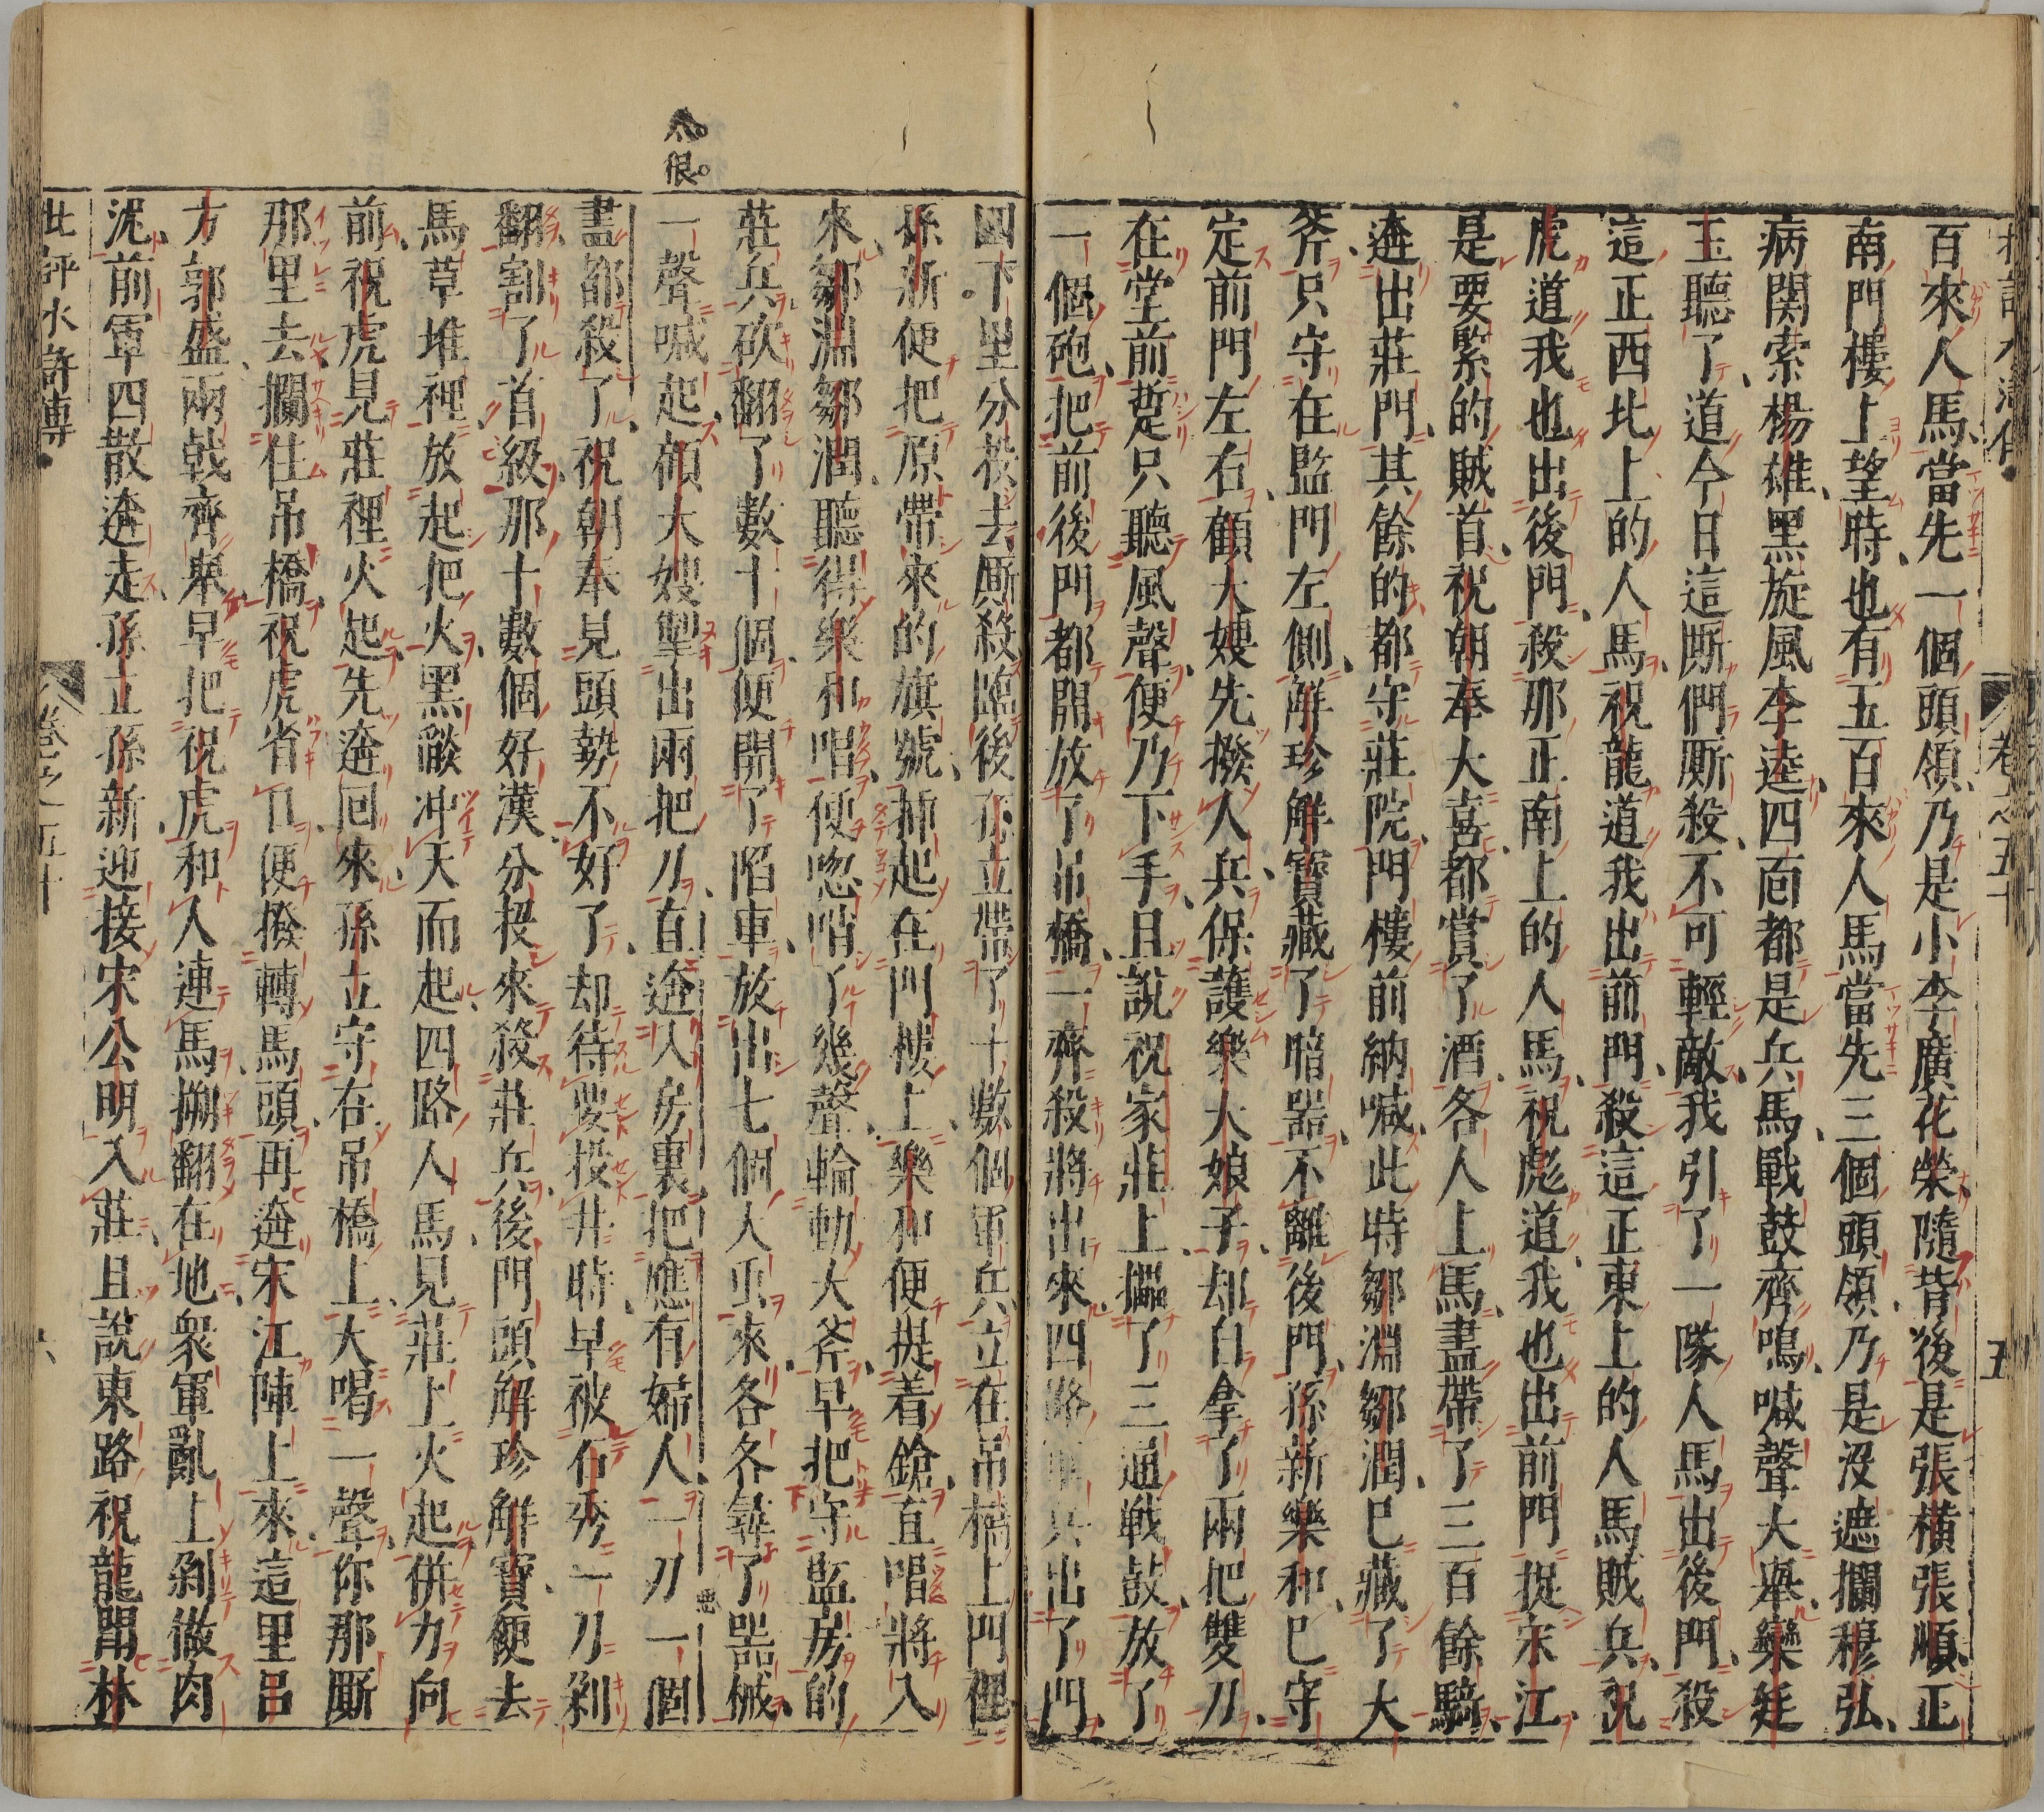 百來人馬、當先一個頭領、乃是小李廣花榮、隨背後是張橫張順、正
南門樓上望時、也有五百來人馬當先三個頭領、乃是沒遮攔穆弘、
病関索楊雄、黑旋風李逵、四面都是兵馬、戰鼓齊鳴、喊聲大舉、欒廷
玉聽了、道今日這厮們厮殺、不可輕敵、我引了一隊人馬出後門、殺
這正西北上的人馬、祝龍道我出前門、殺這正東上的人馬賊兵、祝
虎道我也出後門、殺那正南上的人馬、祝彪道、我也出前門捉宋江、
是要緊的賊首、祝朝奉大喜、都賞了酒、各人上馬、盡帶了三百餘騎、
遶出莊門、其餘的都守莊院、門樓前納喊、此時鄒淵鄒潤、已藏了大
斧、只守在監門左側、解珍解寶藏了暗噐、不離後門、孫新樂和、已守
定前門左右、顧大嫂先撥人兵保護樂大娘子、却自拿了兩把雙刀、
在堂前踅只聽風聲、便乃下手、且說祝家莊上、擂了三通戰鼓、放了
一個砲、把前後門都開放了吊橋、一齊殺將出來、四路軍兵出了門、
四下里分投去厮殺臨後孫立帶了十數個軍兵立在吊橋上門裡
孫新便把原帶來的旗號、插起在門樓上、樂和便提着鎗、直唱將入
來、鄒淵鄒潤、聽得樂和唱、便唿哨了幾聲、輪動大斧、早把守監房的
莊兵砍翻了數十個、便開了陷車、放出七個大虫來、各各尋了噐械、
一聲喊起、顧大嫂掣出兩把刀、直遶入房裏、把應有婦人、一刀一個
盡都殺了、祝朝奉見頭勢不好了、却待要投井時、早被石秀一刀剁
翻、割了首級、那十數個好漢、分投來殺莊兵、後門頭解珍解寶、便去
馬草堆裡、放起把火、黑燄冲天而起、四路人馬、見莊上火起併力向
前、祝虎見莊裡火起先遶回來、孫立守在吊橋上、大喝一聲、你那厮
那里去攔住吊橋、祝虎省口、便撥轉馬頭、再遶宋江陣上來、這里呂
方郭盛、兩戟齊舉、早把祝虎和人連馬、搠翻在地、衆軍亂上剁做肉
泥、前軍四散遶走、孫立孫新、迎接宋公明入莊、且說東路祝龍鬪林
卷之五十
五
太狠。
惡
批評水滸傳
卷之五十